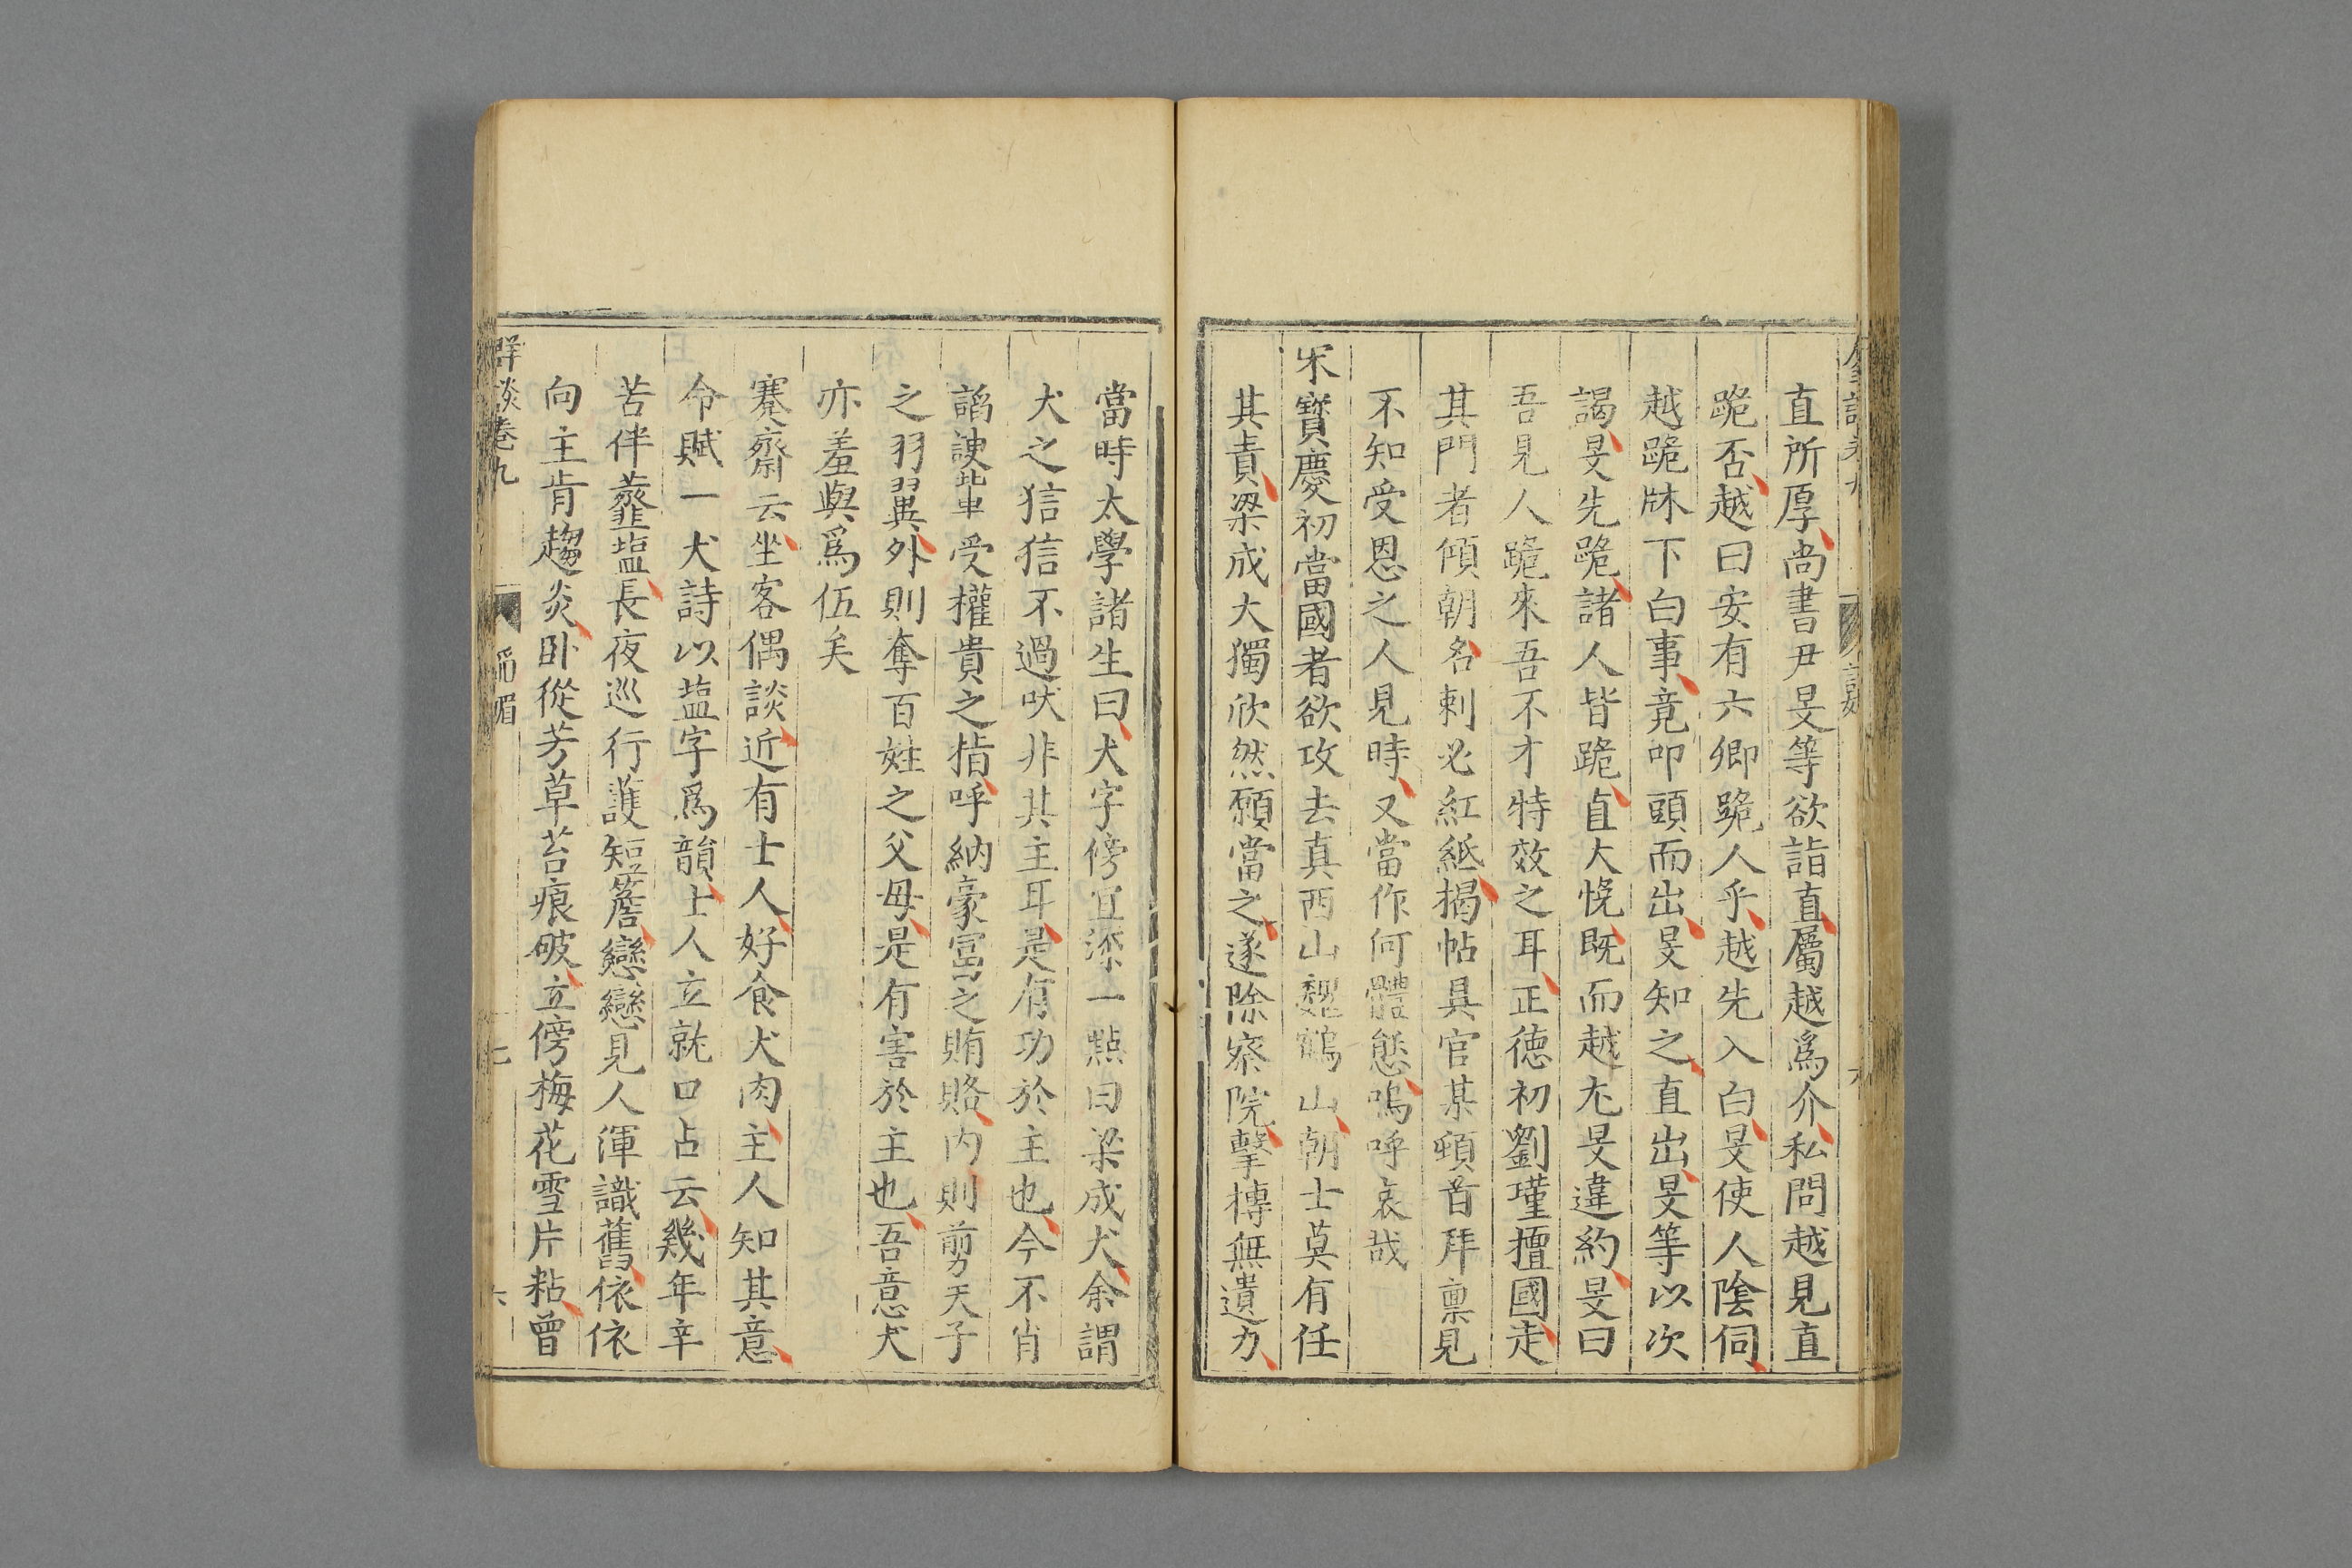 直所厚尚書尹旻等欲詣直屬越爲介私問越見直
跪否越曰安有六卿跪人乎越先入白旻使人陰伺
越跪牀下白事竟叩頭而出旻知之直出旻等以次
謁旻先跪諸人皆跪直大悅既而越尤旻違約旻曰
吾見人跪來吾不才特效之耳正德初劉瑾擅國走
其門者傾朝名刺必紅紙揭帖具官某頓首拜稟見
不知受恩之人見時又當作何體態嗚呼哀哉
宋寶慶初當國者欲攻去真西山魏鶴山朝士莫有任
其責梁成大獨欣然願當之遂除察院擊摶無遺力
當時太學諸生曰犬字傍宜添一點曰梁成犬余謂
犬之狺狺不過吠非其主耳是有功於主也今不肖
謟諛輩受權貴之指呼納豪冨之賄賂內則剪天子
之羽翼外則奪百姓之父母是有害於主也吾意犬
亦羞與爲伍矣
蹇齋云坐客偶談近有士人好食犬肉主人知其意
令賦一犬詩以塩字爲韻士人立就口占云幾年辛
苦伴虀塩長夜巡行護短簷戀戀見人渾識舊依依
向主肯趨炎卧從芳草苔痕破立傍梅花雪片粘曾
群談卷九